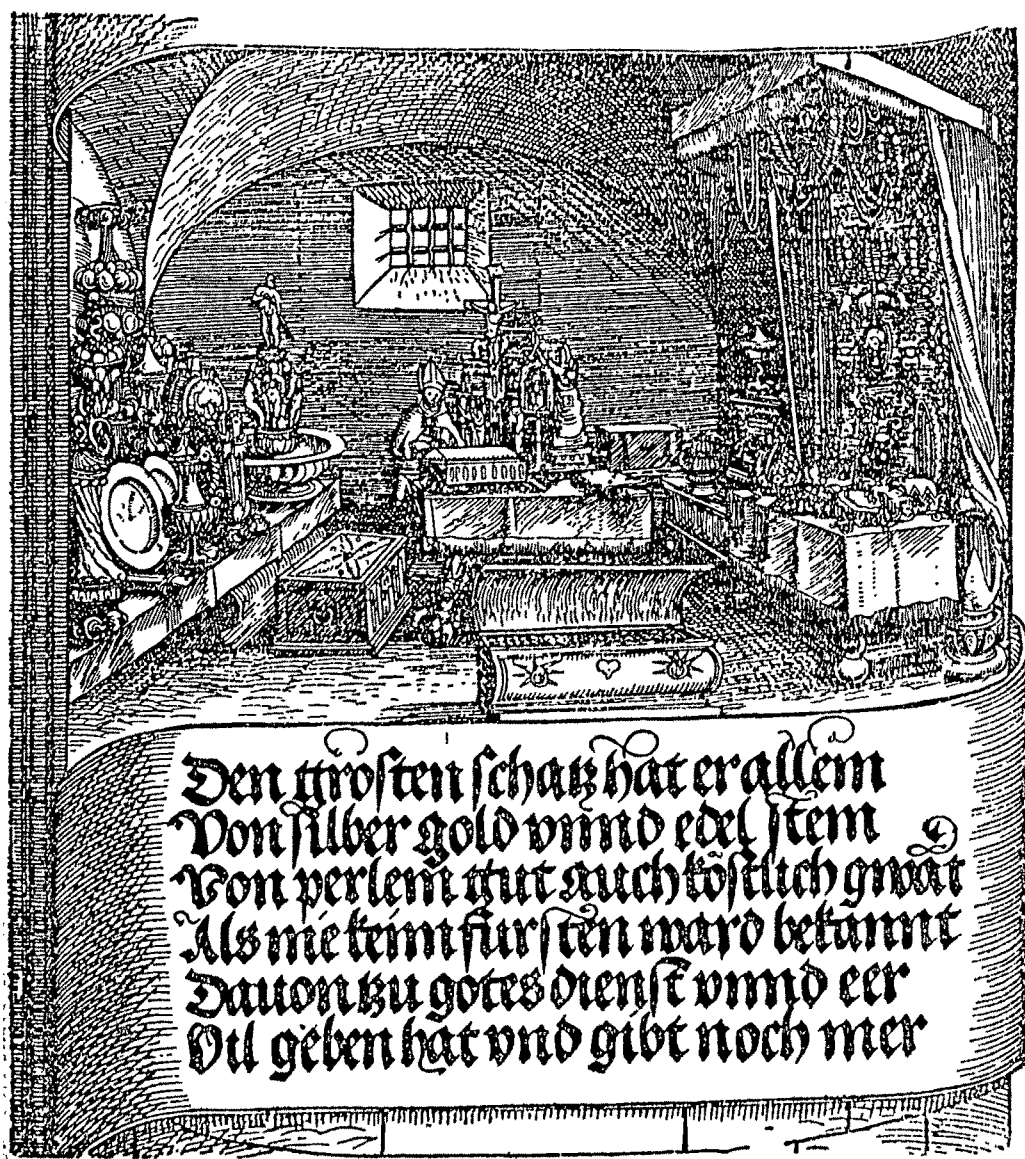 Den grosten schatz hat er allein
Von silber gold vnnd edel stein
Von perlein gut auch köstlich gwăt
Als nie keinn fürsten ward bekannt
Dauon tzu gotes dienst vnnd eer
Vil geben hat vnd gibt noch mer